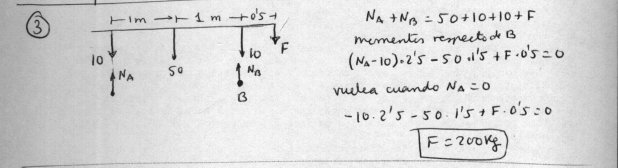 3
1m 1 m 0'5
10 50 10 F
NA NB
B
NA + NB = 50+10+10+F
momentos respecto de B
(NA-10)·2'5 - 50·1'5 + F·0'5 = 0
vuelca cuando NA = 0
-10·2'5 - 50·1'5 + F·0'5 = 0
F = 200Kg